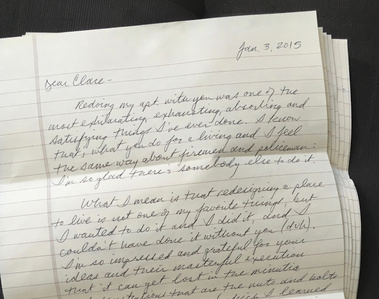 Jan. 3, 2015
Dear Clare -
Redoing my apt with you was one of the
most exhilarating, exhausting, absorbing and
satisfying things I've ever done. I know
that's what you do for a living and I feel
the same way about firemen and policemen:
I'm so glad there's somebody else to do it.
What I mean is that redesigning a place
to live is not one of my favorite things, but
I wanted to do it and I did it, and I
couldn't have done it without you (duh).
I'm so impressed and grateful for your
ideas and their masterful execution
that it can get lost in the minutes
that are the nuts and bolts
I learned